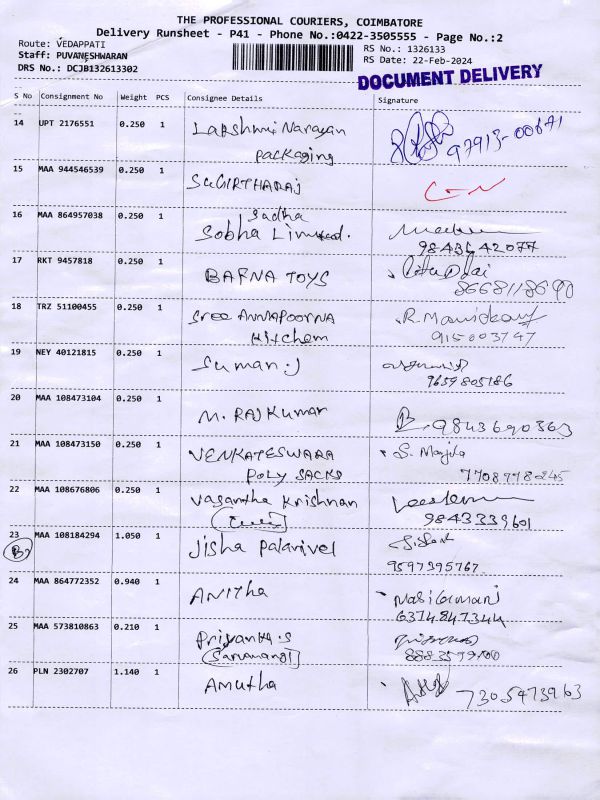 THE PROFESSIONAL COURIERS, COIMBATORE
Delivery Runsheet - P41 - Phone No.:0422-3505555 - Page No.:2
Route: VEDAPPATI
RS No.: 1326133
Staff: PUVANESHWARAN
RS Date: 22-Feb-2024
DRS No.: DCJB132613302
DOCUMENT DELIVERY
S No Consignment No Weight PCS Consignee Details Signature
14 UPT 2176551 0.250 1 Lakshmi Narayan
packaging
97913-00671
15 MAA 944546539 0.250 1 SUGIRTHARAJ
16 MAA 864957038 0.250 1 Sadha
Sobha Limited.
9843642077
17 RKT 9457818 0.250 1 BAFNA TOYS
8668118690
18 TRZ 51100455 0.250 1 Sree ANNAPOORNA R. Manickam
Kitchem 915003747
19 NEY 40121815 0.250 1 Suman.J
9659805186
20 MAA 108473104 0.250 1 M. RAJKUMAR
9843690363
21 MAA 108473150 0.250 1 VENKATESWARA S. Majila
POLY SACKS 7708778245
22 MAA 108676806 0.250 1 Vasantha Krishnan
9843339601
23 MAA 108184294 1.050 1 Jisha Palanivel
9597395767
24 MAA 864772352 0.940 1 ANITha Masilamani
6374847344
25 MAA 573810863 0.210 1 Priyanka.S
8883579100
26 PLN 2302707 1.140 1 Amutha
7305473963